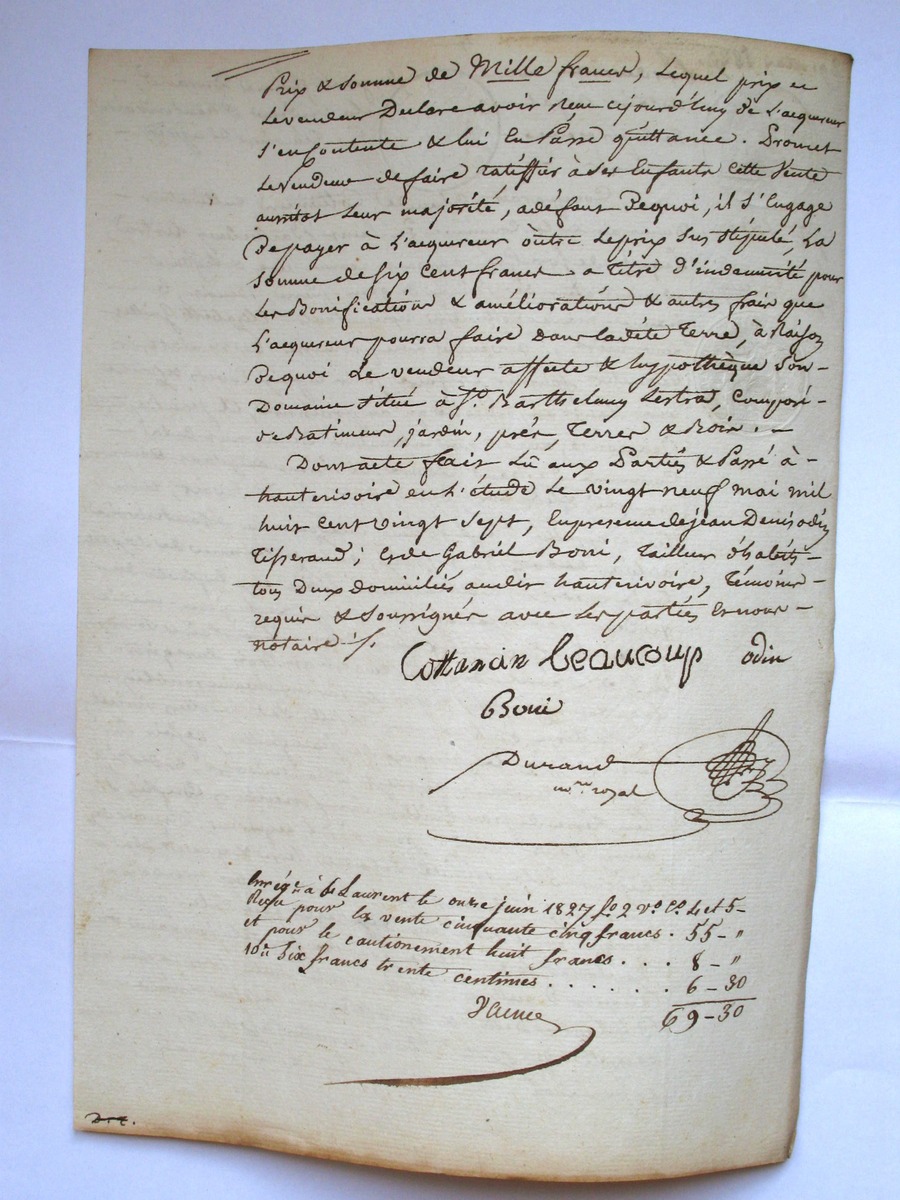 Prix & somme de Mille francs, Lequel prix
Le vendeur Declare avoir reçu cejourd'huy de L'acquereur
S'en Contente & lui En Passe quittance. Promet
Le Vendeur de faire ratiffier à ses Enfants Cette Vente
aussitot Leur majorité, a défaut Dequoi, il S'Engage
De payer à L'acquereur outre Le prix Sus stipulé, La
Somme de Six Cent francs a Titre d'indemnité pour
Les Bonifications & améliorations & autres frais que
L'acquereur pourra faire Dans Ladite Terre, à Raison
Dequoi Le vendeur affecte & hypothèque Son
Domaine Situé à St. Barthelemy Lestra, Composé
de Batimens, jardin, prés, Terres & Bois. —
Dont acte fait Lû aux Parties & Passé à
hauterivoire en L'étude Le vingt neuf mai mil
huit Cent vingt Sept, En presence de jean Denis odin
Tisserand; Et de Gabriel Boni, Tailleur d'habits
tous Deux domiciliés audit hauterivoire, Témoins
requis & Soussignés avec Les parties Et nous
notaire ·/.
Cottancin Beaucoup odin
Boni
Durand
no.re royal
Enrég.é à St Laurent le onze juin 1827 fo 2 vo Cs 4 et 5 -
Reçu pour la vente cinquante cinq francs . 55 - "
et pour le cautionement huit francs . . . 8 - "
10e Six francs trente centimes . . . . . . . 6 - 30
69 - 30